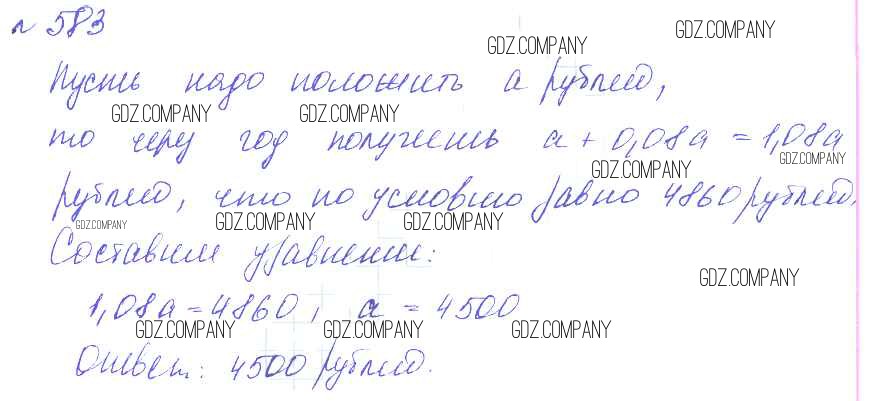 № 583
GDZ.COMPANY GDZ.COMPANY
Пусть надо положить a рублей,
GDZ.COMPANY GDZ.COMPANY
то через год получишь a + 0,08a = 1,08a
GDZ.COMPANY GDZ.COMPANY
рублей, что по условию равно 4860 рублей.
GDZ.COMPANY GDZ.COMPANY GDZ.COMPANY
Составим уравнение:
GDZ.COMPANY
1,08a = 4860, a = 4500
GDZ.COMPANY GDZ.COMPANY GDZ.COMPANY
Ответ: 4500 рублей.